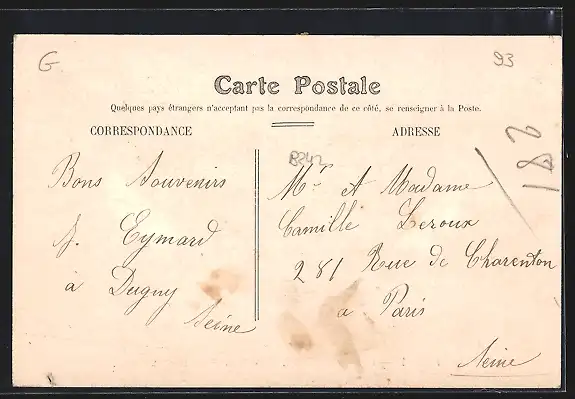 G
93
Carte Postale
Quelques pays étrangers n'acceptant pas la correspondance de ce côté, se renseigner à la Poste.
CORRESPONDANCE
ADRESSE
Bons Souvenirs
J. Eymard
à Dugny
Seine
B242
182
Mr et Madame
Camille Leroux
281 Rue de Charenton
a Paris
Seine